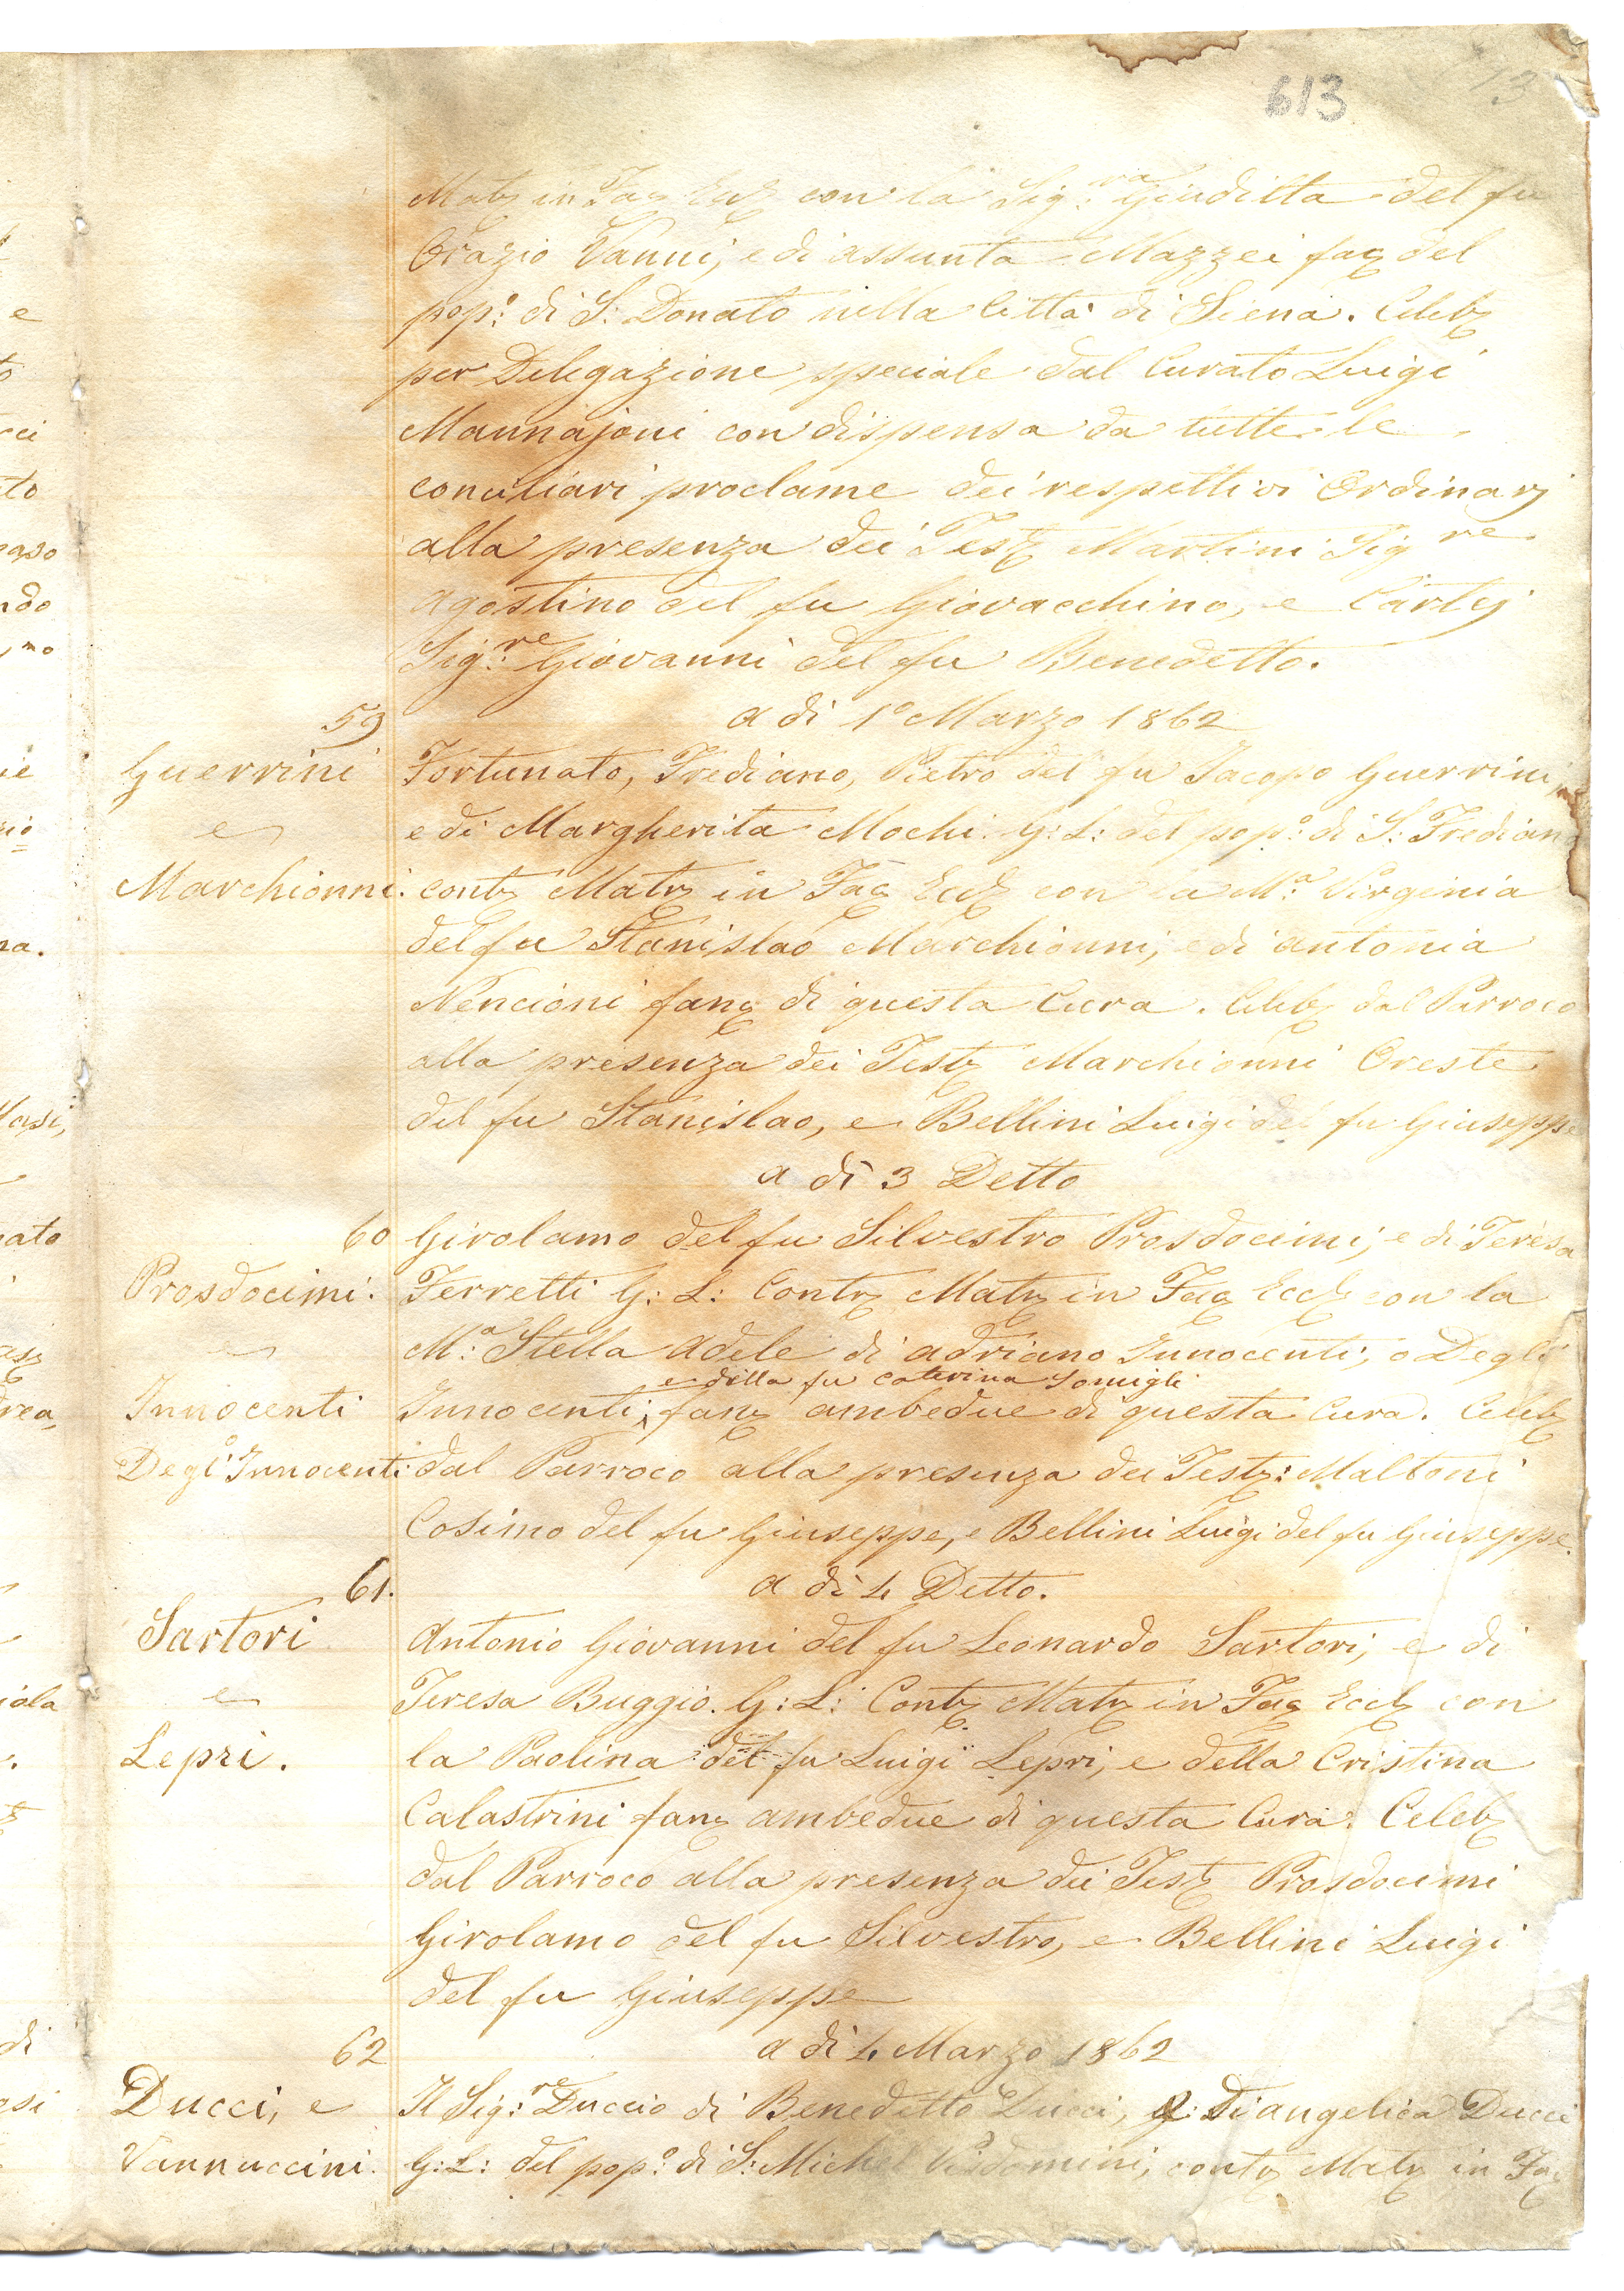 613
13
Matr in Fac Eccl con la Sig:ra Giuditta del fu
Orazio Vanni, e di assunta Mazzei fac del
pop:o di S: Donato nella Città di Siena. Celeb
per Delegazione speciale dal Curato Luigi
Mannajoni con dispensa da tutte le
conciliari proclame dei respettivi Ordinarj
alla presenza dei Test Martini Sig re
agostino del fu Giovacchino, e Cartej
Sig:re Giovanni del fu Benedetto.
a di 1o Marzo 1862
59
Guerrini Fortunato, Frediano, Pietro del fu Jacopo Guerrini,
e e di Margherita Mochi. G: L: del pop:o di S: Frediano
Marchionni. contr Matr in Fac Eccl con la M:a Virginia
del fu Stanislao Marchionni, e di antonia
Nencioni fanc di questa Cura. Celeb dal Parroco
alla presenza dei Test Marchionni Oreste
del fu Stanislao, e Bellini Luigi del fu Giuseppe
a di 3 Detto
60 Girolamo del fu Silvestro Prosdocimi, e di Teresa
Prosdocimi. Ferretti G: L: Contr Matr in Fac Eccl con la
e M:a Stella adele di adriano Innocenti, o Degli
e della fu Caterina Somigli
Innocenti Innocenti, fanc ambedue di questa Cura. Celeb
o
Degl'Innocenti dal Parroco alla presenza dei Test: Maltoni
Cosimo del fu Giuseppe, e Bellini Luigi del fu Giuseppe.
61. a di 4 Detto.
Sartori Antonio Giovanni del fu Leonardo Sartori, e di
e Teresa Buggio. G: L: Contr Matr in Fac Eccl con
Lepri. la Paolina del fu Luigi Lepri, e della Cristina
Calastrini fanc ambedue di questa Cura. Celeb
dal Parroco alla presenza dei Test Prosdocimi
Girolamo del fu Silvestro, e Bellini Luigi
del fu Giuseppe
62 a di 4 Marzo 1862
Ducci, e Il Sig:re Duccio di Benedetto Ducci, e di angelica Ducci
Vannuccini. G: L: del pop:o di S: Michel Visdomini, contr Matr in Fac